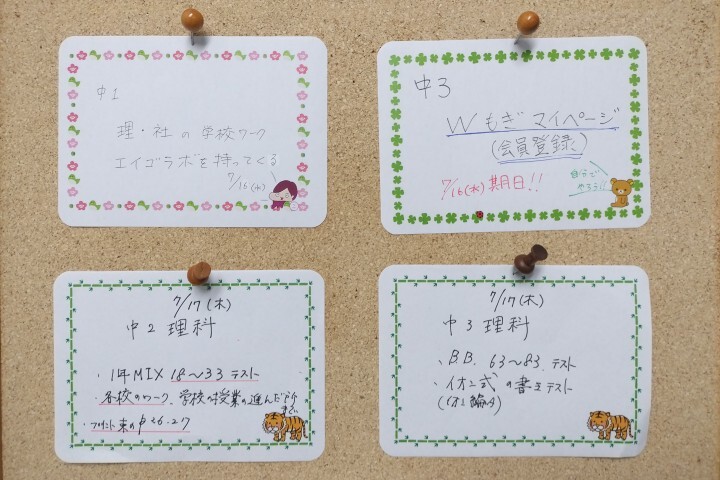 中1
理・社の学校ワーク
エイゴラボを持ってくる
7/16(水)
中3
Wもぎマイページ
(会員登録)
7/16(水)期日!!
自分で
やろう!!
7/17(木)
中2 理科
・1年MIX 18〜33 テスト
・各校のワーク、学校の授業の進んだ所
まで
・プリント束のP26.27
7/17(木)
中3 理科
・BB. 63〜83. テスト
・イオン式の書きテスト